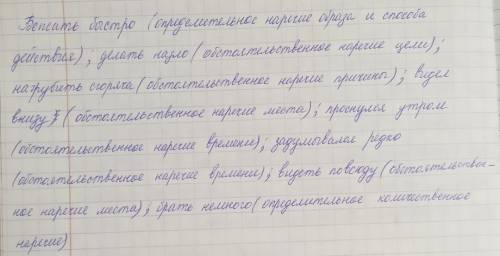 Поспать быстро (определительное наречие образа и способа
действия); делать назло (обстоятельственное наречие цели);
нагрубить сгоряча (обстоятельственное наречие причины); видел
внизу (обстоятельственное наречие места); проснулся утром
(обстоятельственное наречие времени); задумывался редко
(обстоятельственное наречие времени); видеть повсюду (обстоятельствен-
ное наречие места); брать немного (определительное количественное
наречие)